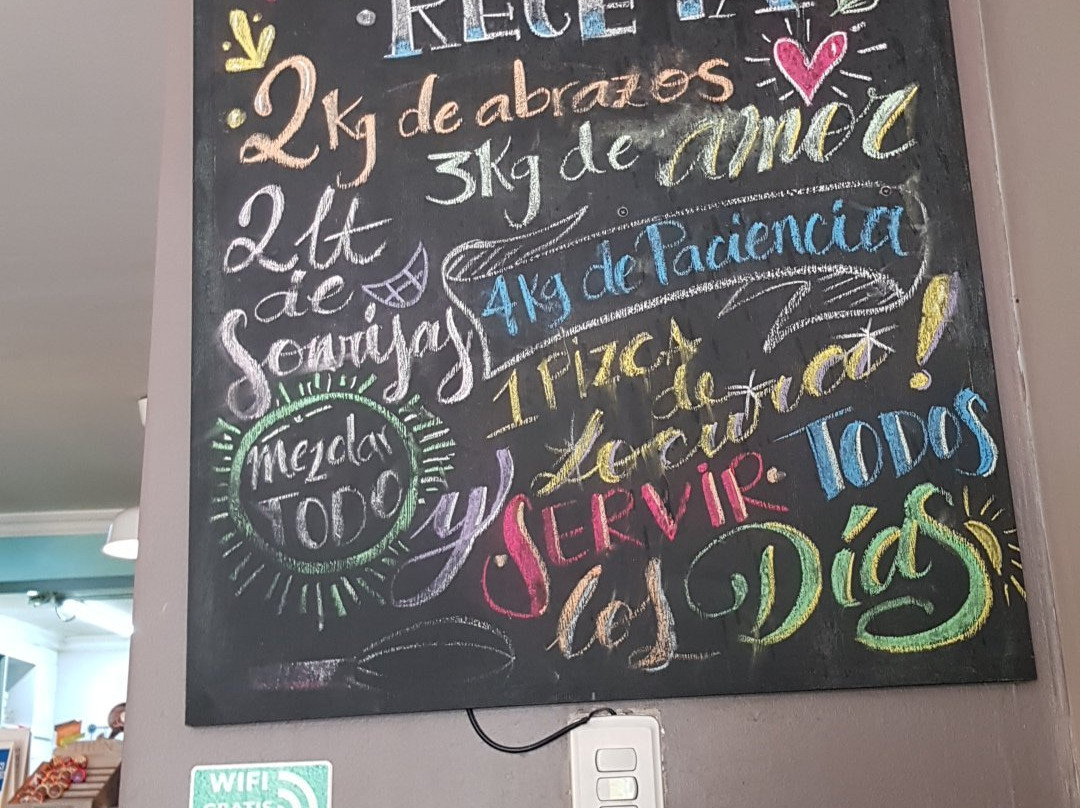 RECETA
2kg de abrazos
3kg de amor
2 lt
de
Sonrisas
4kg de Paciencia
1 PIZCA
de
Locura!
mezclar
TODO
y SERVIR TODOS
los Días
WIFI
GRATIS